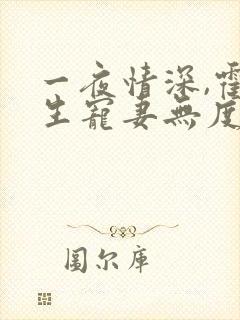 一夜情深,霍
生寵妻無度
圖尔庫